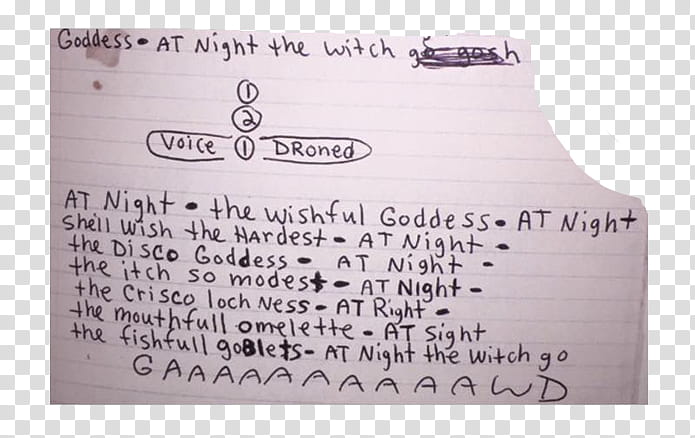 Goddess • AT Night the witch go gosh
①
②
Voice ① DRoned
AT Night • the wishful Goddess • AT Night
She'll wish the Hardest - AT Night -
the Disco Goddess - AT Night -
the itch so modest - AT Night -
the Crisco loch Ness - AT Right -
the mouthfull omelette - AT Sight
the fishfull goblets - AT Night the witch go
GAAAAAAAAAAWD